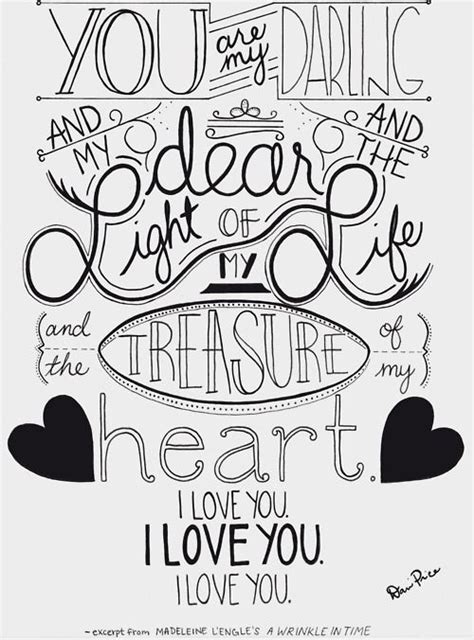 YOU are my DARLING
AND MY dear AND THE
Light OF MY Life
(and the TREASURE of my)
heart.
I LOVE YOU.
I LOVE YOU.
I LOVE YOU.
Dani Price
~excerpt from MADELEINE L'ENGLE'S A WRINKLE IN TIME